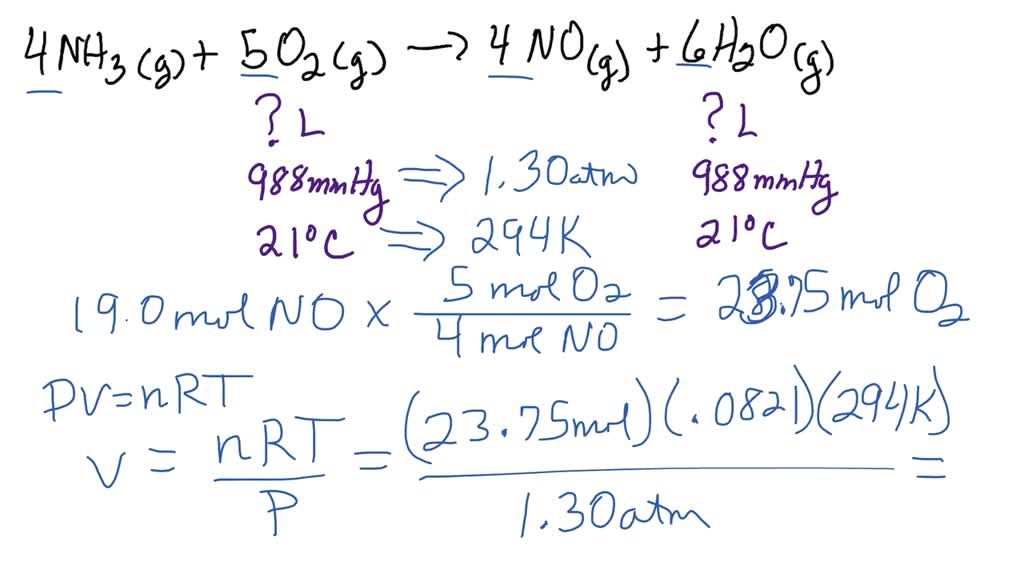 4NH3(g) + 5O2(g) → 4NO(g) + 6H2O(g)
? L ? L
988mmHg ⇒ 1.30atm 988mmHg
21°C ⇒ 294K 21°C
19.0mol NO × 5 mol O2 / 4 mol NO = 23.75 mol O2
PV=nRT
V = nRT / P = (23.75mol)(.0821)(294K) / 1.30atm =